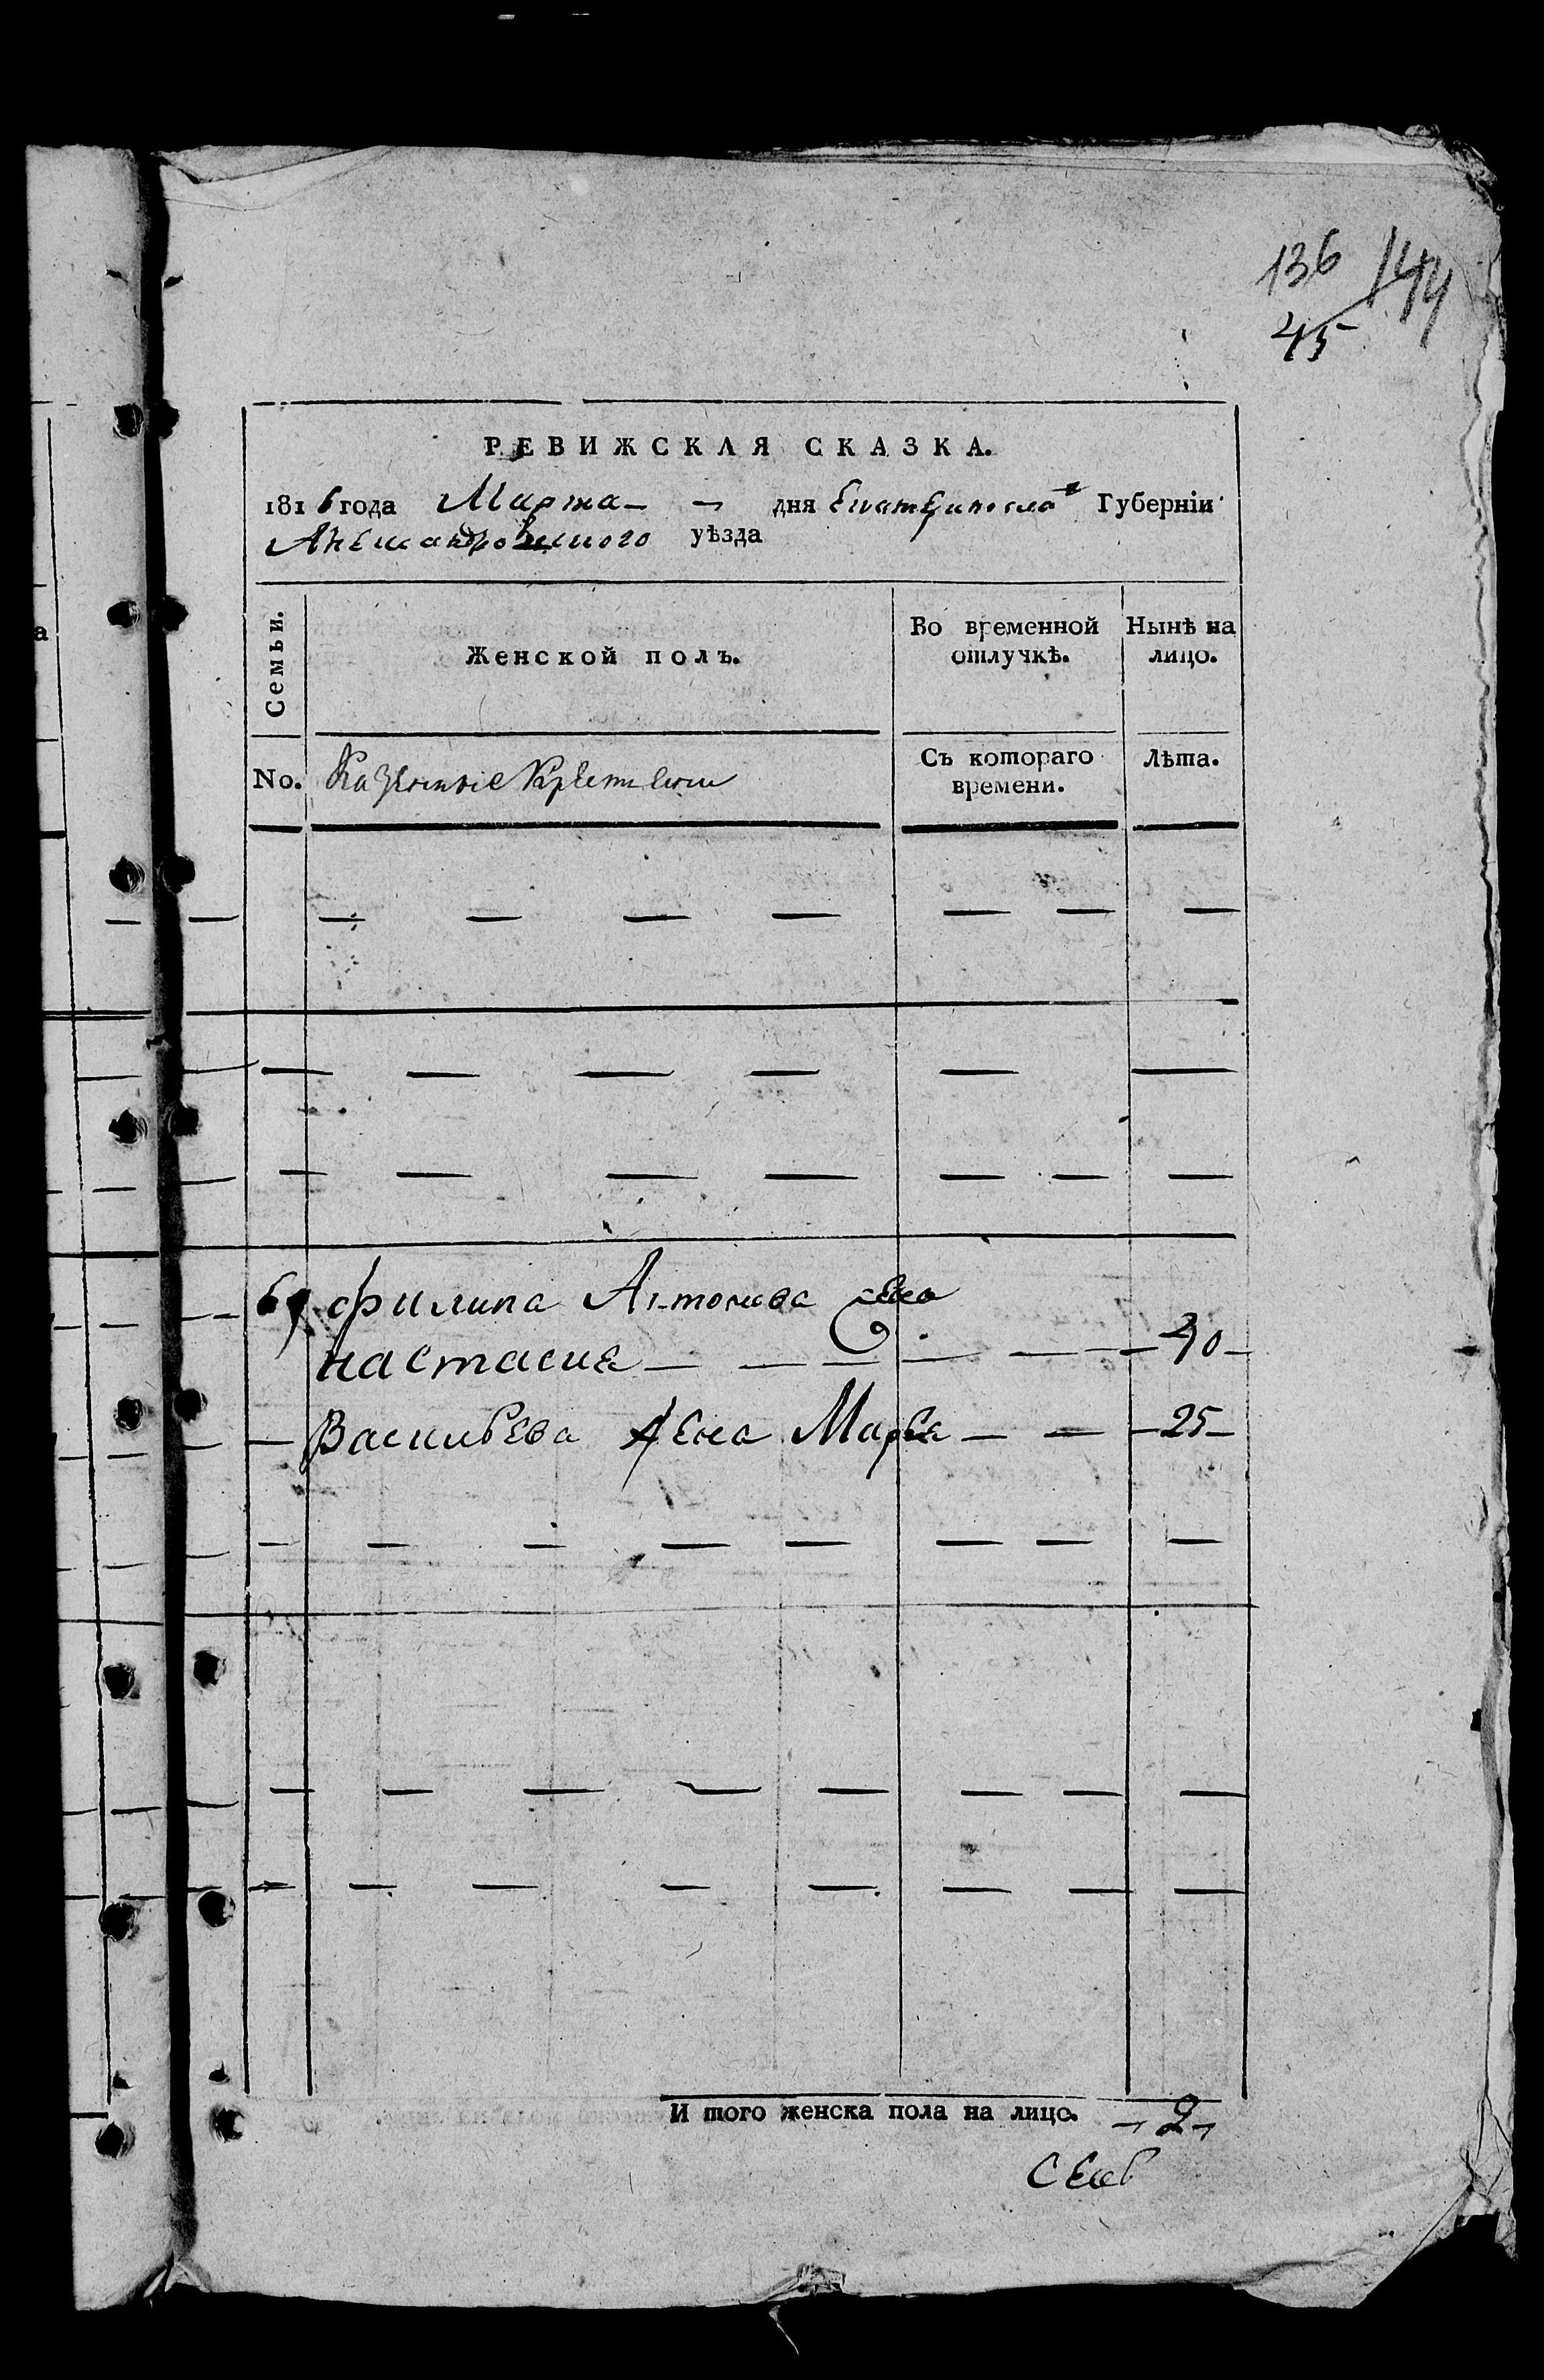 136 144
45
РЕВИЖСКАЯ СКАЗКА.
1816 года Марта — — дня Екатериносла Губерніи
Александровского уѣзда
Семьи.
Женской полъ.
Во временной отлучкѣ.
Нынѣ на лицо.
No.
Казенные Крестьяни
Съ котораго времени.
Лѣта.
а
— — — — — — —
— — — — — —
— — — — — — —
69 Филипа Антонова жена
настасия — — — — — — 40 —
— Васильева жена Марья — — — 25 —
— — — — — — — —
— — — — — — — —
— — — — — — — —
И того женска пола на лицо. — 2 —